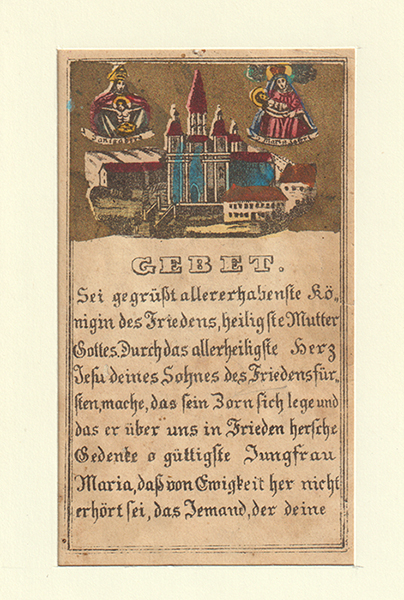 GEBET.
Sei gegrüßt allererhabenste Kö„
nigin des Friedens, heiligste Mutter
Gottes. Durch das allerheiligste Herz
Jesu deines Sohnes des Friedensfür„
sten, mache, das sein Zorn sich lege und
das er über uns in Frieden hersche
Gedenke o güttigste Jungfrau
Maria, daß von Ewigkeit her nicht
erhört sei, das Jemand, der deine